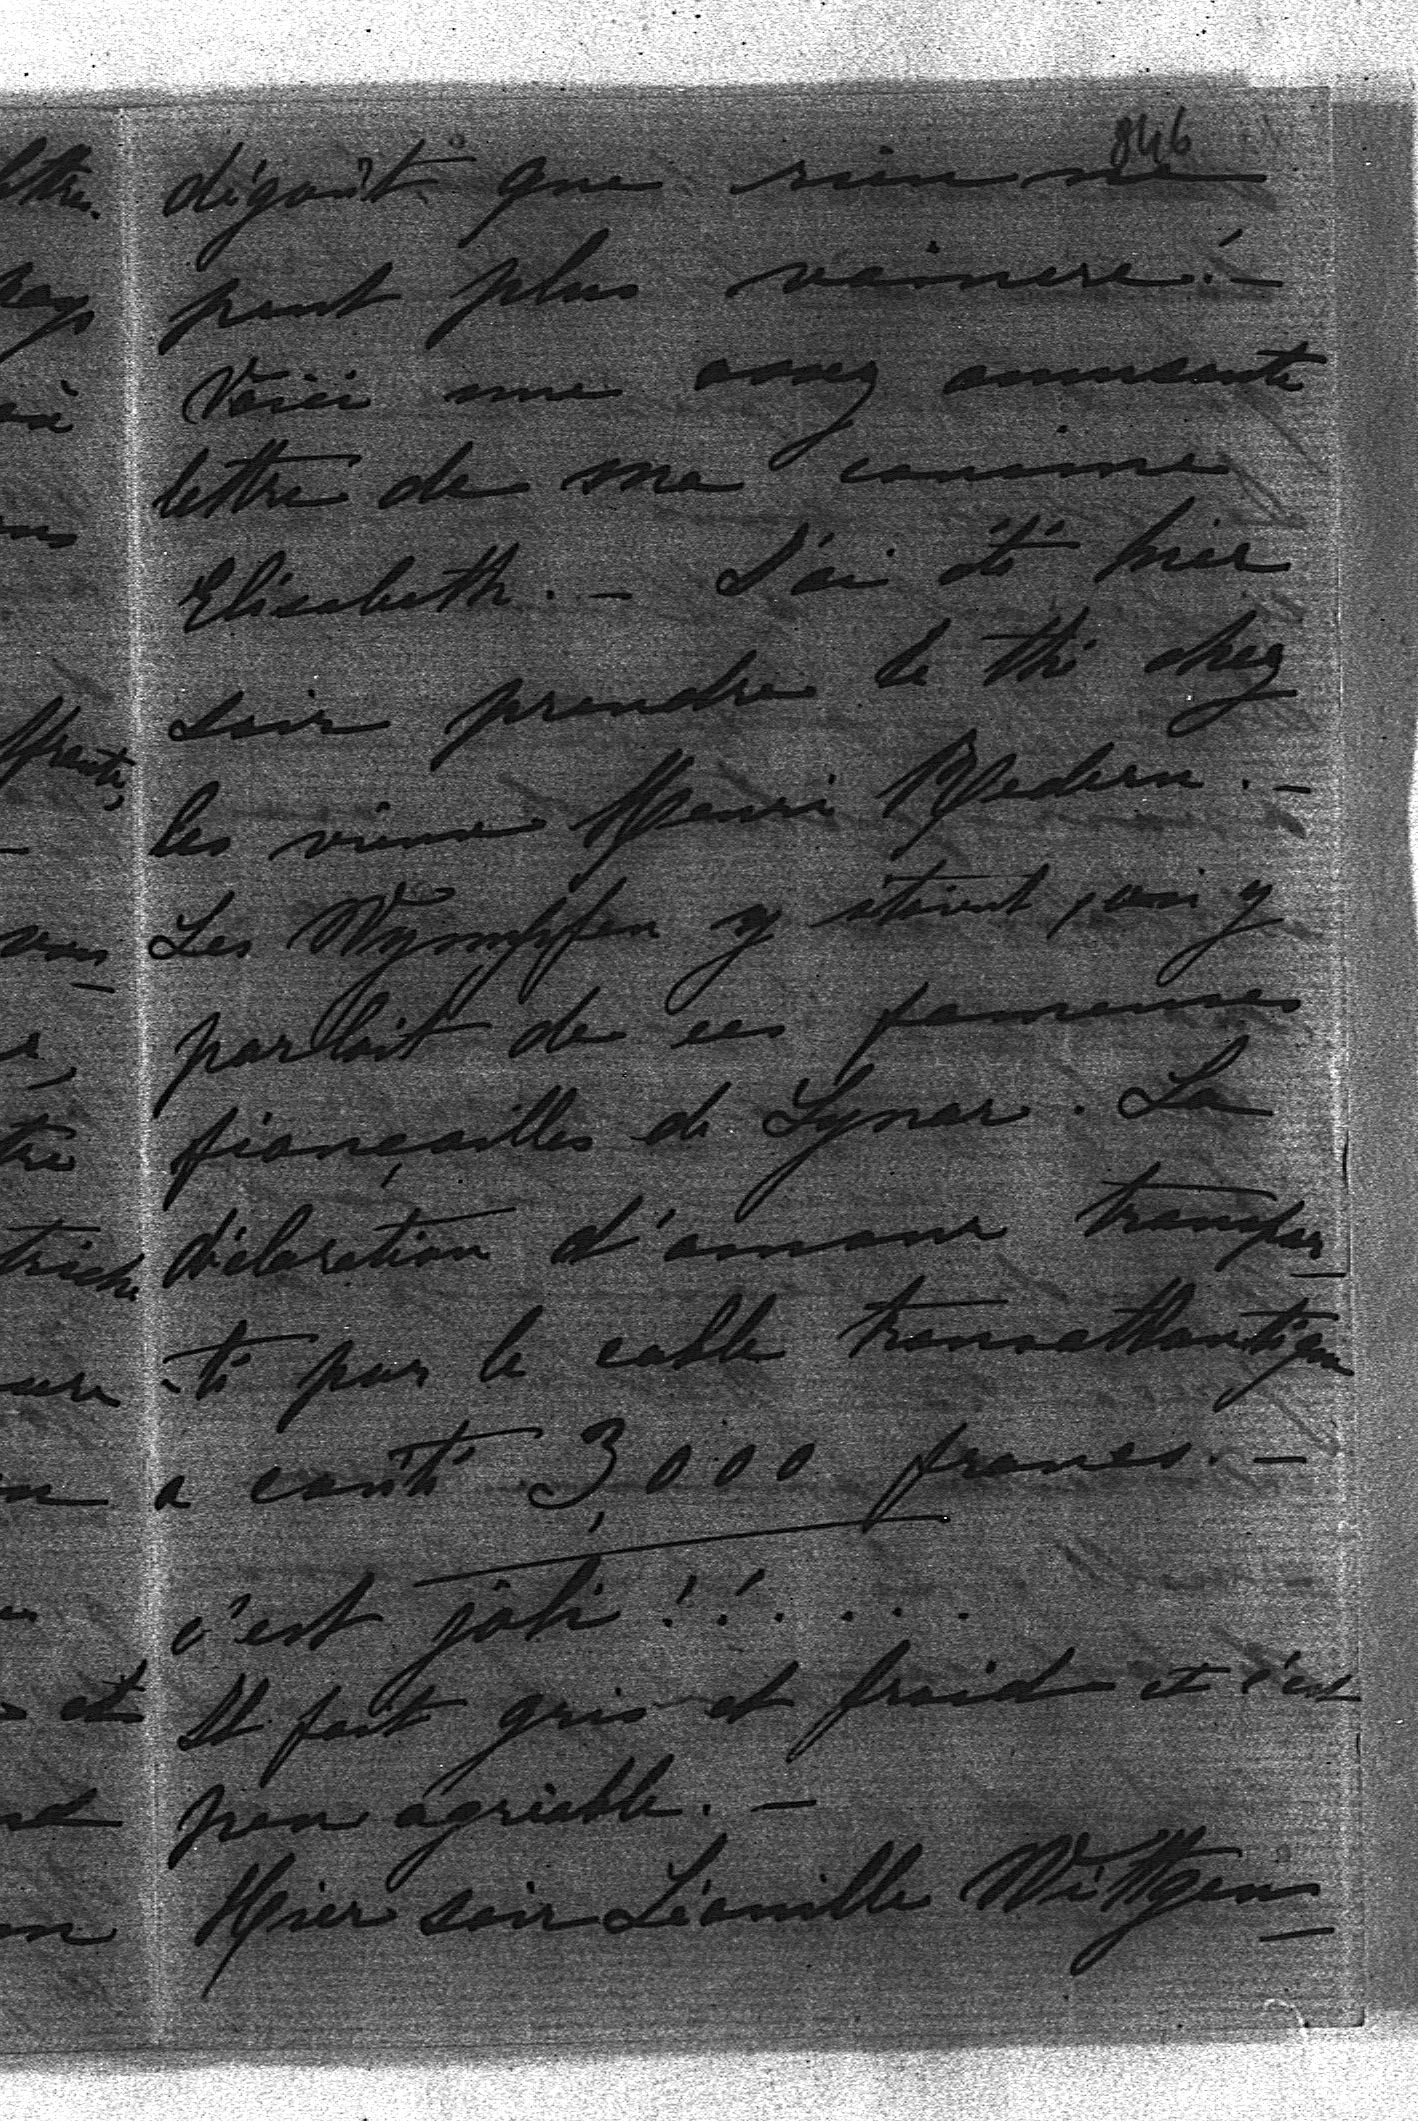 846
dégoût que rien ne
peut plus vaincre! -
Voici une assez amusante
lettre de ma cousine
Elisabeth. - J'ai été hier
soir prendre le thé chez
les vieux Henri Redern. -
Les Wympfen y étaient, on y
parlait de ces fameuses
fiançailles de Lynar. La
déclaration d'amour transpor-
-té par le cable transatlantique
a coûté 3000 francs. -
c'est joli!!....
Il fait gris et froid et c'est
peu agréable. -
Hier soir Léonille Wittgen-